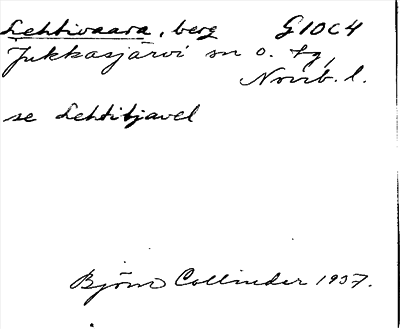 Lehtivaara, berg G10C4
Jukkasjärvi sn o. tg,
Norrb. l.
se Lehtitjavel
Björn Collinder 1937.